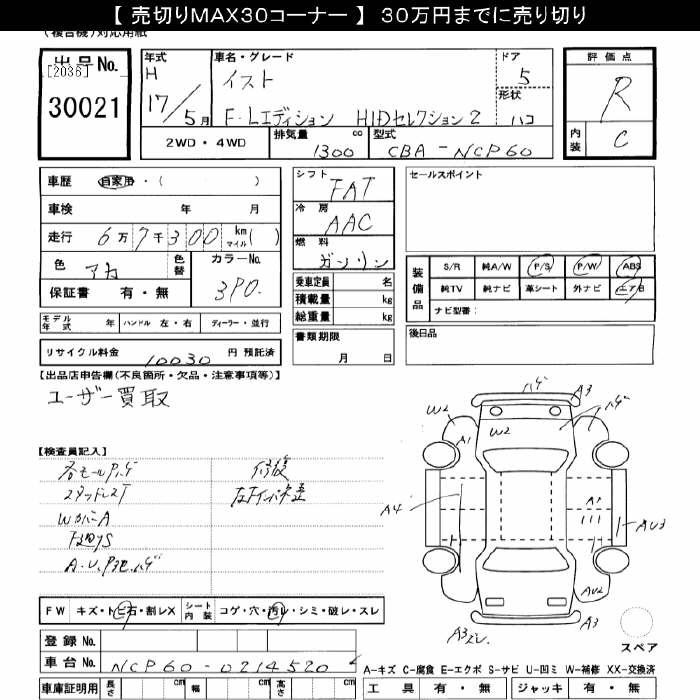 【 売切りMAX30コーナー 】 30万円までに売り切り
(複合機)対応用紙
出品No.
[2036]
30021
年式
H
17/5月
車名・グレード
イスト
F-Lエディション HIDセレクション2
ドア
5
形状
ハコ
評価点
R
内装
C
2WD・4WD
排気量
1300
cc
型式
CBA-NCP60
車歴 自家用・( )
車検 年 月
走行 6万7千300 km マイル( )
色 アカ
色替
カラーNo.
3P0.
保証書 有・無
モデル年式 年
ハンドル 左・右
ディーラー・並行
リサイクル料金 10030 円 預託済
シフト
FAT
冷房
AAC
燃料
ガソリン
乗車定員 名
積載量 kg
総重量 kg
書類期限
月 日
セールスポイント
装備品
S/R 純A/W P/S P/W ABS
純TV 純ナビ 革シート 外ナビ エアB
ナビ型番:
後日品
【出品店申告欄(不良箇所・欠品・注意事項等)】
ユーザー買取
【検査員記入】
各モールハゲ 修後
スタッドレスT
WカバーA
ハゲ A3
W2 W2 ハゲ
A1
A4 A1 AU3
AU2
A3 A3
スペア
FW キズ・トビ石・割レX
シート内装 コゲ・穴・汚レ・シミ・破レ・スレ
登録No.
車台No. NCP60-0214520
車庫証明用 長さ cm 幅 cm 高さ cm
A-キズ C-腐食 E-エクボ S-サビ U-凹ミ W-補修 XX-交換済
工具 有・無 ジャッキ 有・無